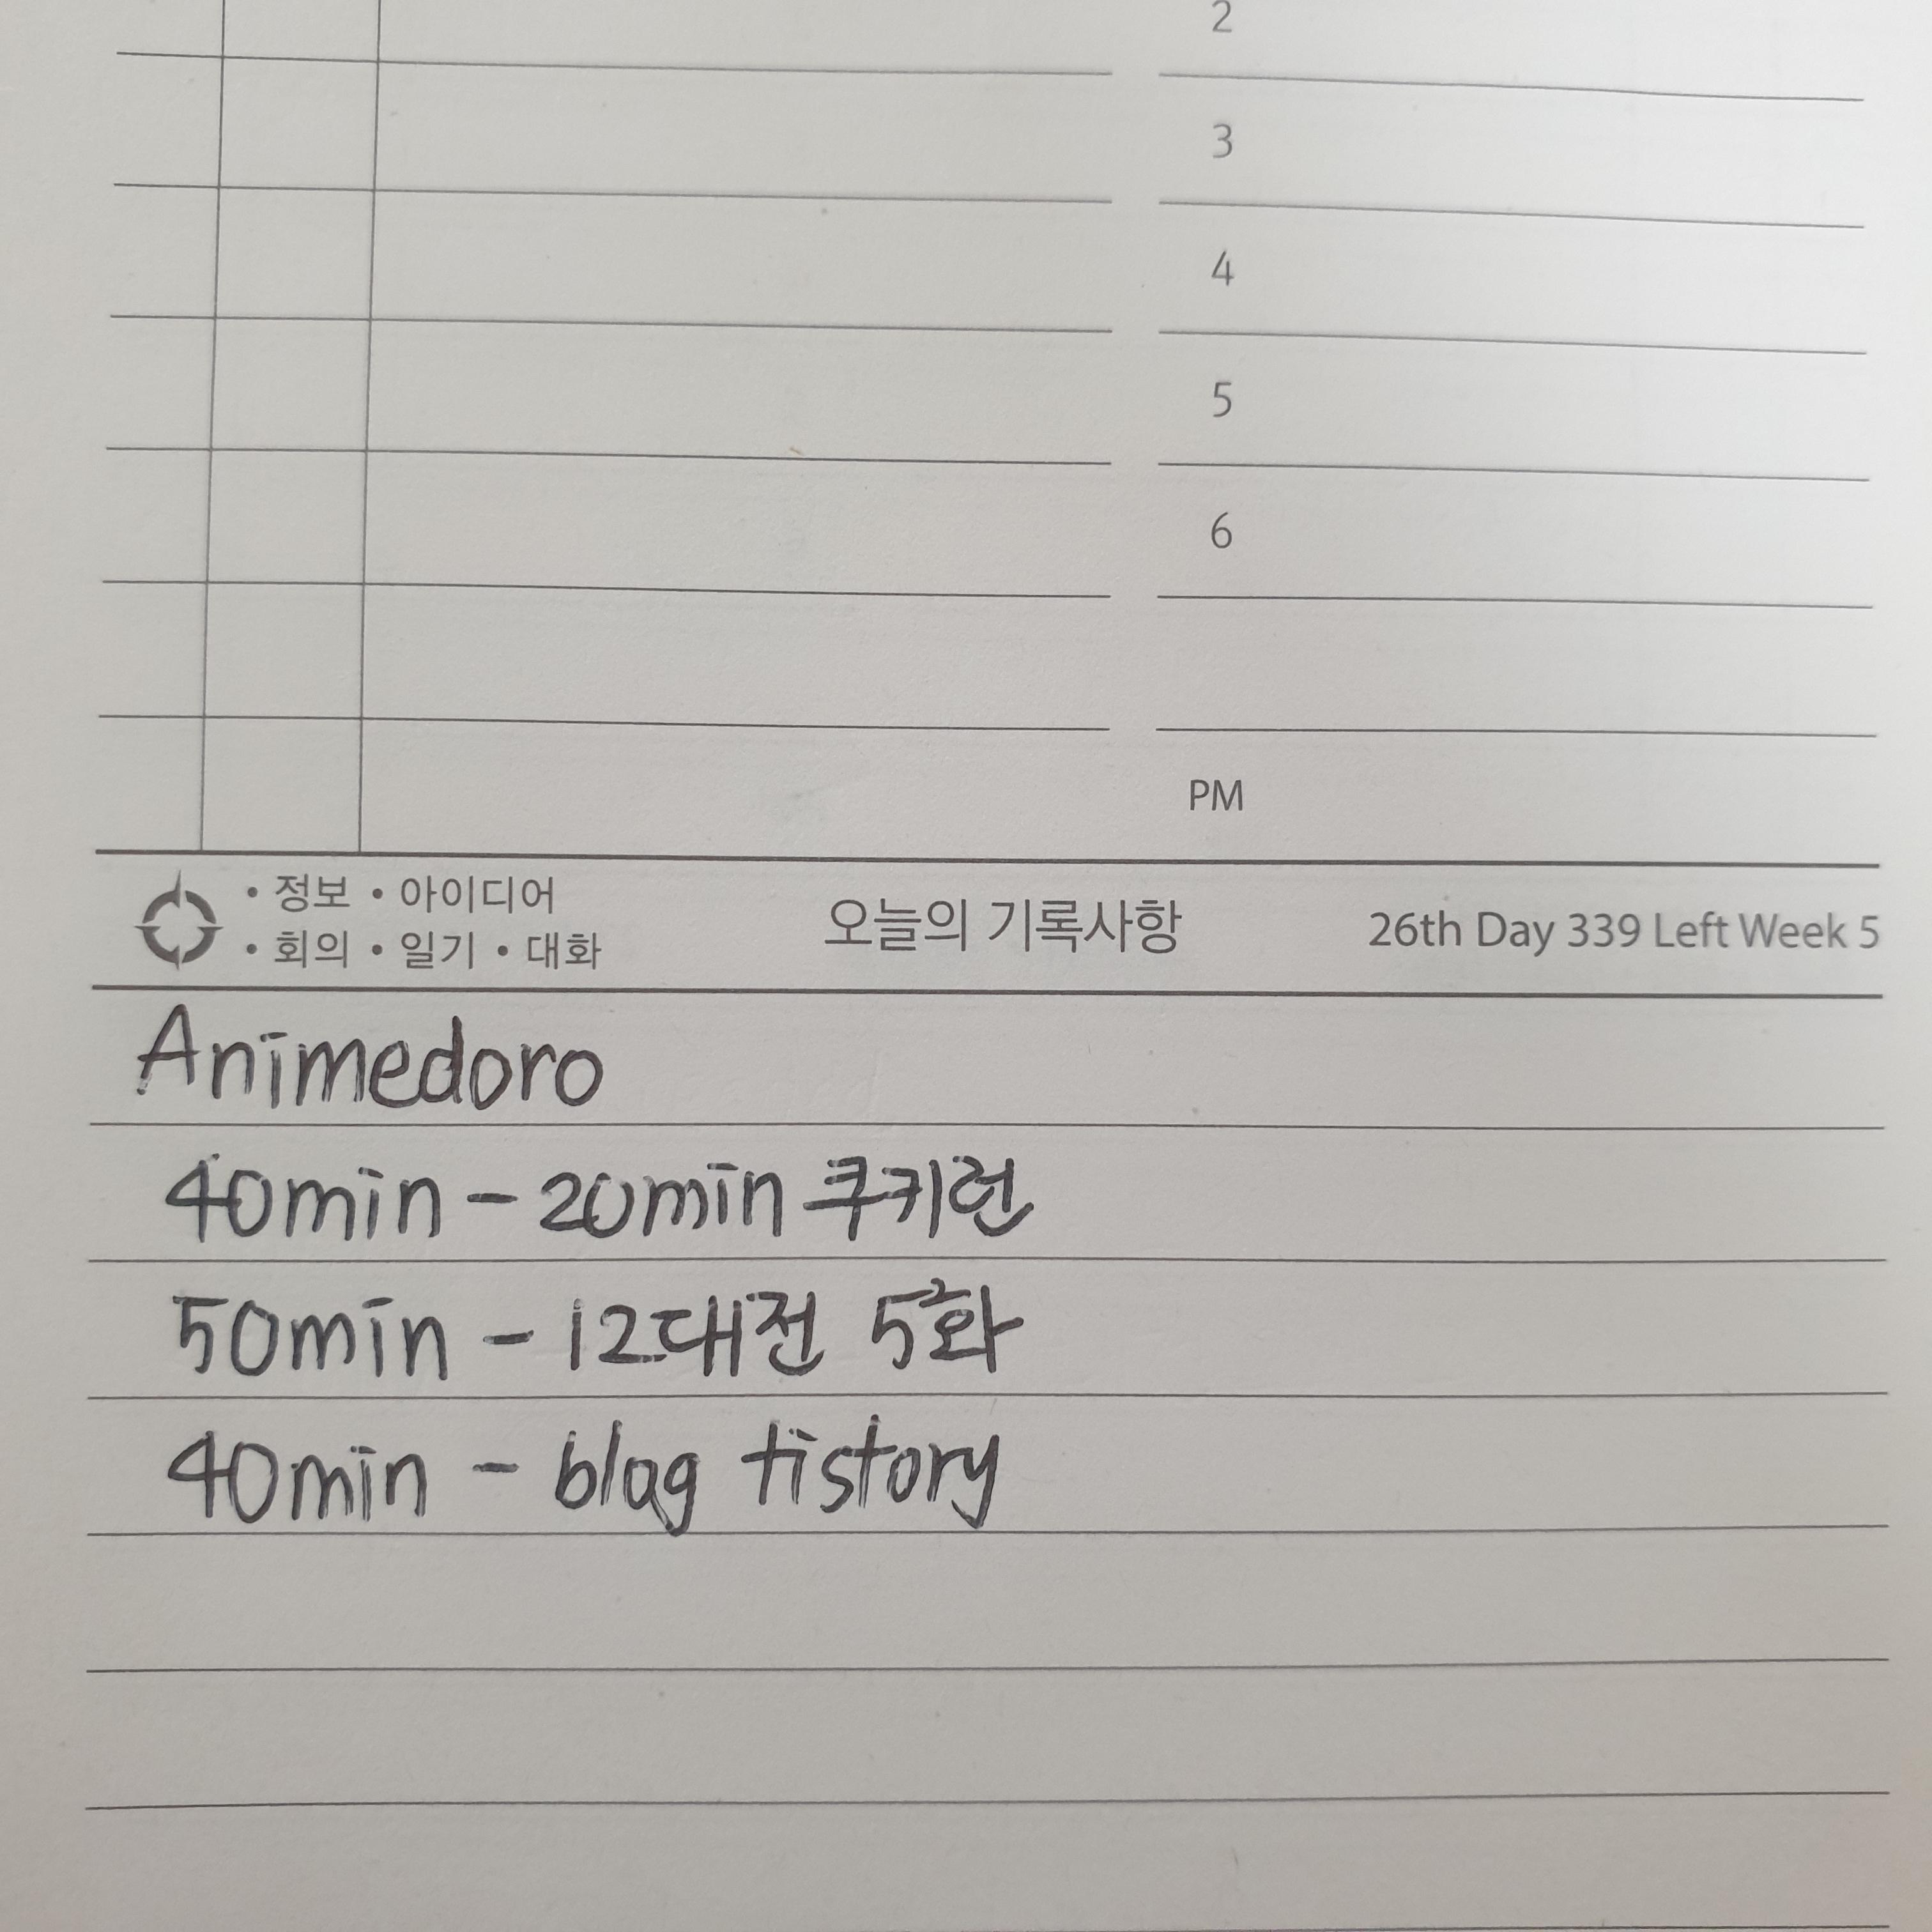 2
3
4
5
6
PM
• 정보 • 아이디어
• 회의 • 일기 • 대화
오늘의 기록사항
26th Day 339 Left Week 5
Animedoro
40min - 20min 쿠키런
50min - 12대전 5화
40min - blog tistory